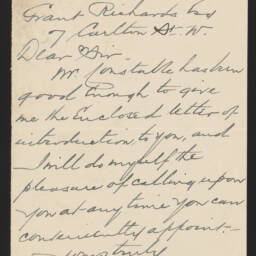 Grant Richards Esq
7 Carlton St. W.
Dear Sir.
Mr. Constable has been
good enough to give
me the enclosed letter of
introduction to you, and
I will do myself the
pleasure of calling upon
you at any time you can
conveniently appoint.—
yours truly